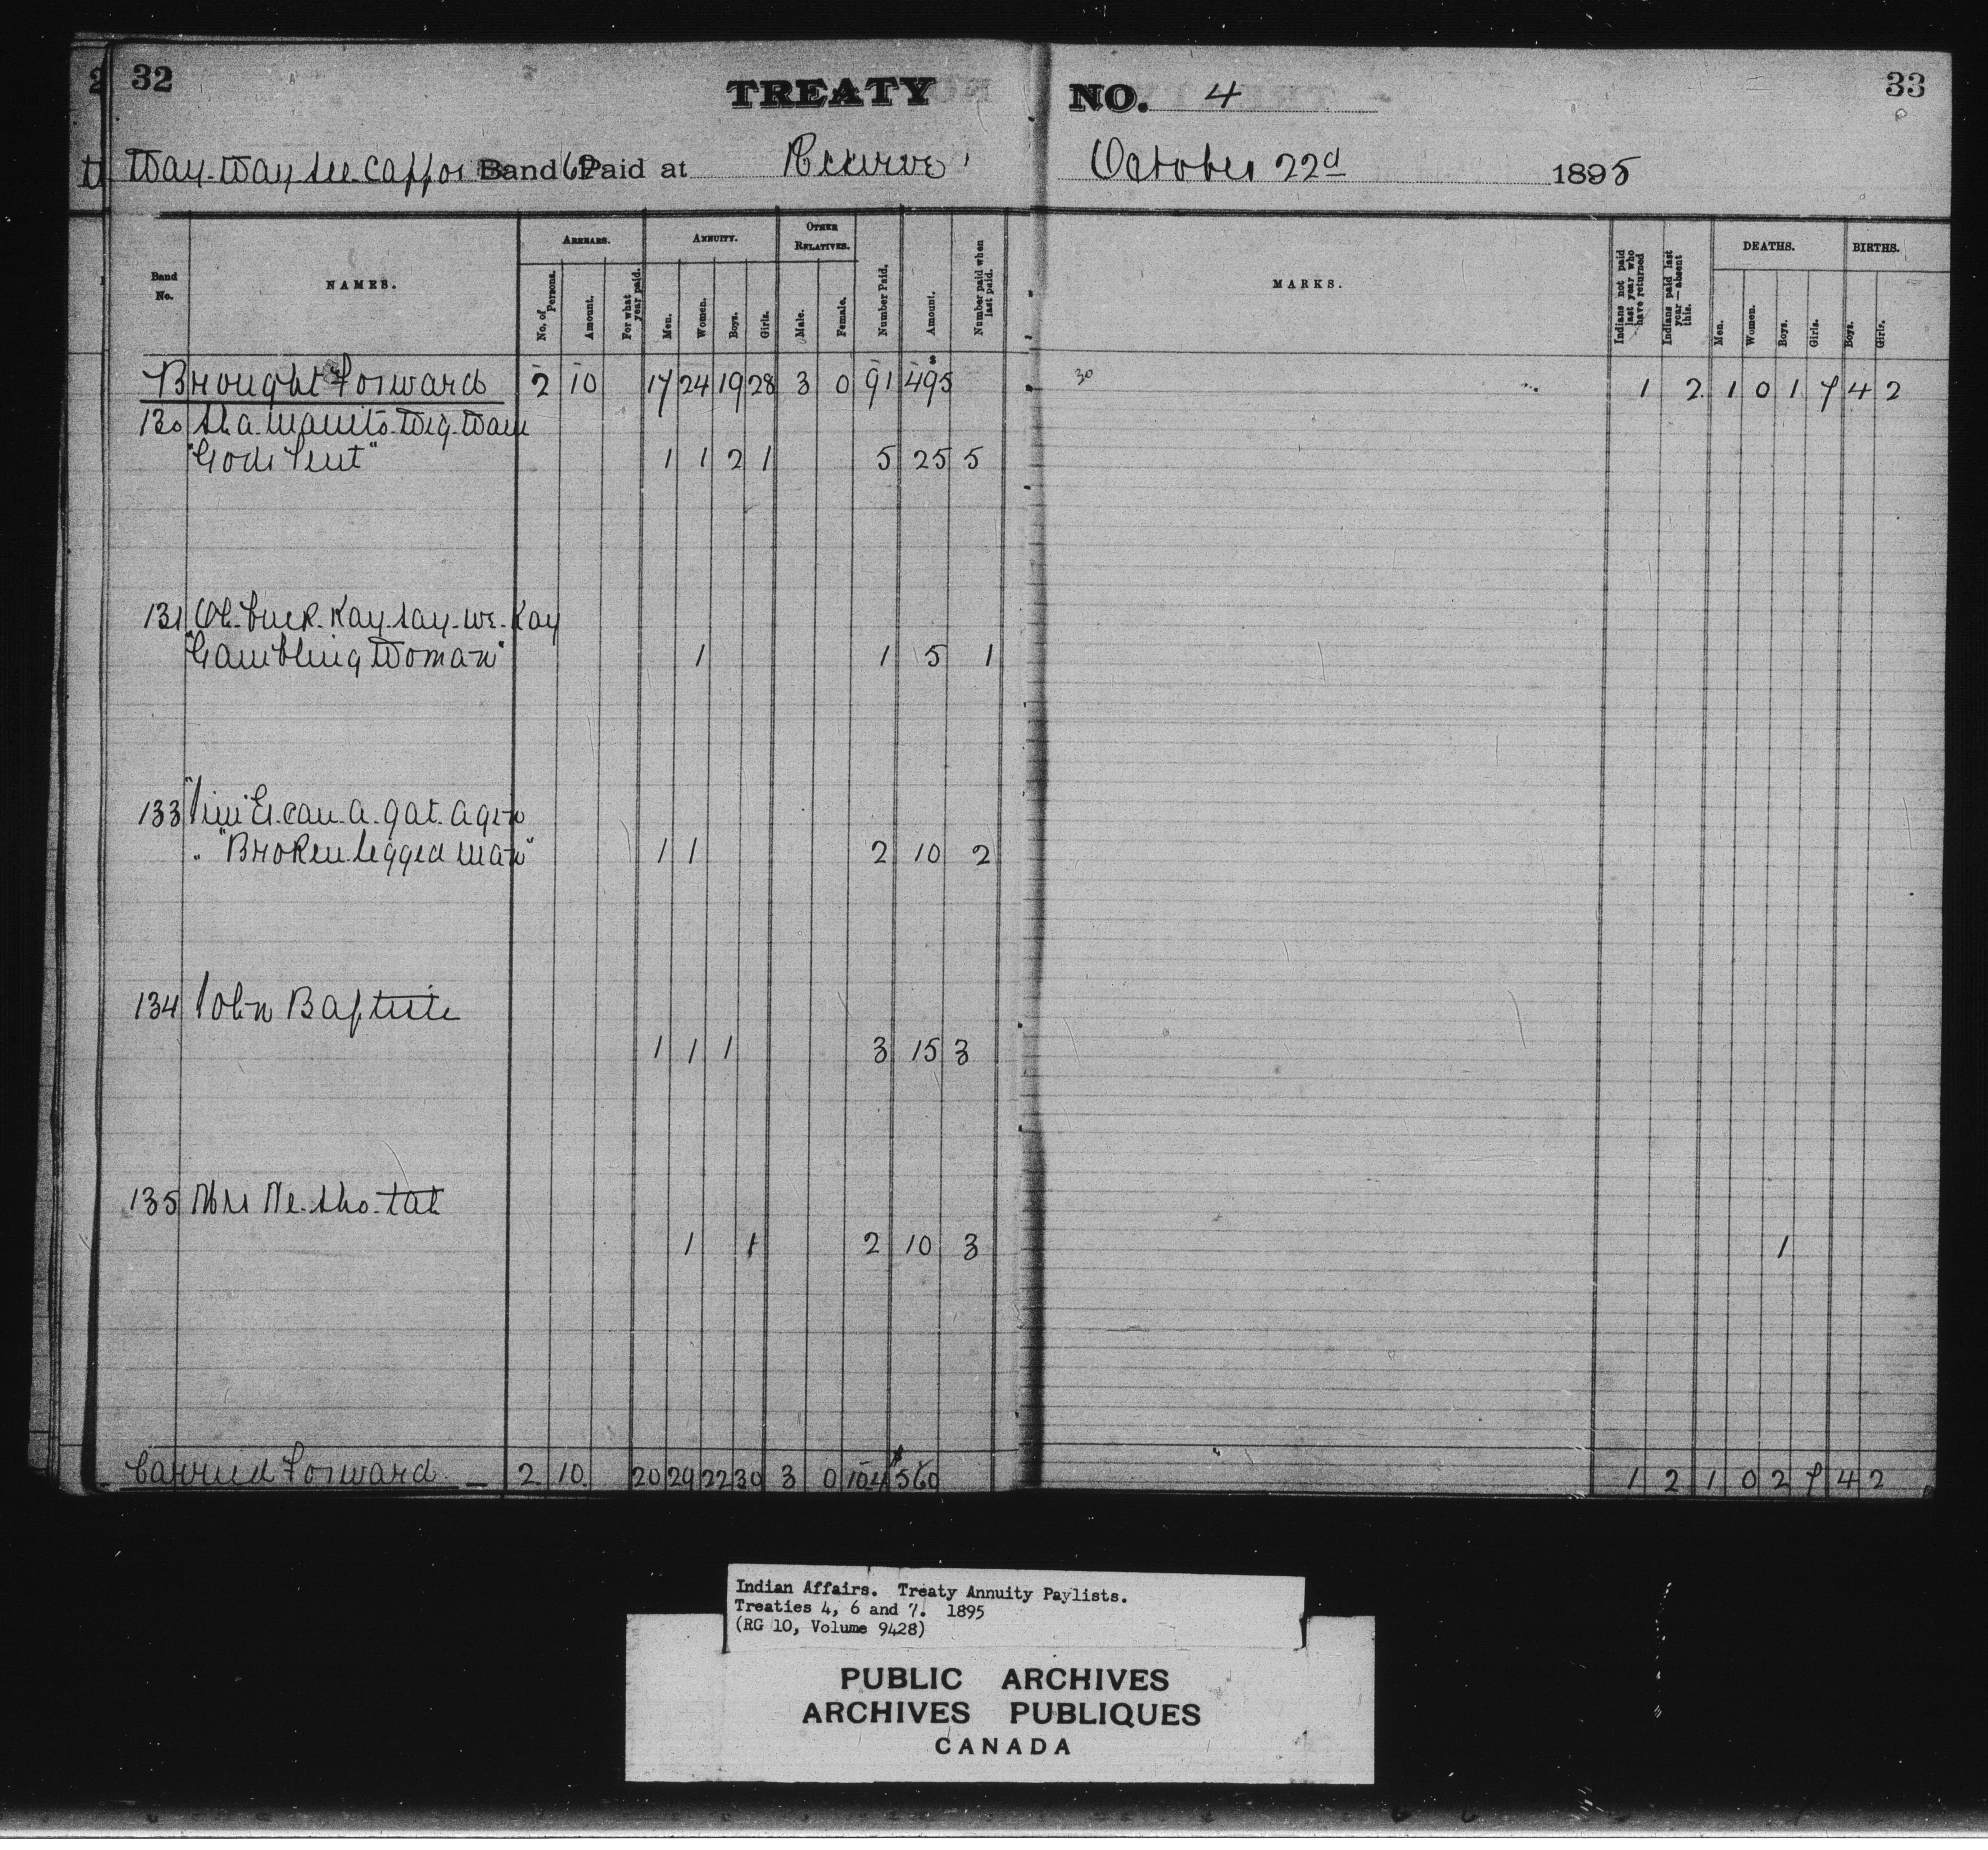 32 TREATY NO. 4 33
Way-Way see Cappo's Band 62 Paid at Reserve October 22d 1895
Band No. NAMES. ARREARS. No. of Persons. Amount. For what year paid. ANNUITY. Men. Women. Boys. Girls. OTHER RELATIVES. Male. Female. Number Paid. Amount. Number paid when last paid. MARKS. Indians not paid last year who have returned Indians paid last year—absent this. DEATHS. Men. Women. Boys. Girls. BIRTHS. Boys. Girls.
Brought Forward 2 10 17 24 19 28 3 0 91 495 30 1 2 1 0 1 7 4 2
130 Sha. Manito. Wig. Wam
"Gods Tent" 1 1 2 1 5 25 5
131 Oh. tuck. Kay. say. we. Kay
"Gambling Woman" 1 1 5 1
133 "Jim" Es. can. a. gat. agen
" "Broken legged man" 1 1 2 10 2
134 John Baptiste
1 1 1 3 15 3
135 Mrs Ne. sho. tah
1 1 2 10 3 1
Carried Forward 2 10 20 29 22 30 3 0 104 $560 1 2 1 0 2 7 4 2
Indian Affairs. Treaty Annuity Paylists.
Treaties 4, 6 and 7. 1895
(RG 10, Volume 9428)
PUBLIC ARCHIVES
ARCHIVES PUBLIQUES
CANADA